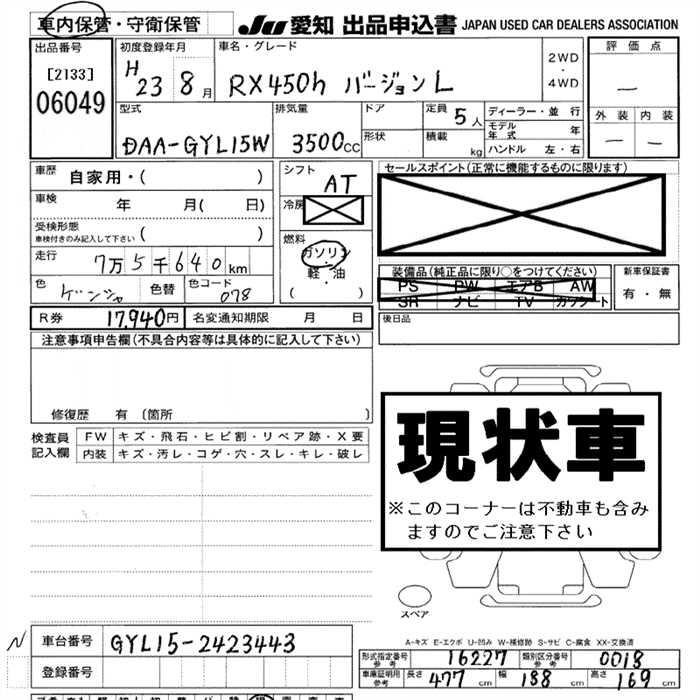 車内保管・守衛保管
JU 愛知 出品申込書 JAPAN USED CAR DEALERS ASSOCIATION
出品番号
[2133]
06049
初度登録年月
H 23 8月
車名・グレード
RX450h バージョンL
2WD
・
4WD
評価点
—
外装 内装
— —
型式
DAA-GYL15W
排気量
3500cc
ドア
形状
定員 5人
積載 kg
ディーラー・並行
モデル年式 年
ハンドル 左・右
車歴 自家用・( )
車検 年 月( 日)
受検形態
車検付きのみ記入して下さい ( )
走行 7万5千640km
色 ゲンシャ 色替 色コード 078
シフト
AT
冷房
燃料
ガソリン
・
軽・油
( )
セールスポイント(正常に機能するものに限ります)
装備品(純正品に限り○をつけてください)
PS PW エアB AW
SR ナビ TV カワシート
新車保証書
有・無
R券 17,940円 名変通知期限 月 日
後日品
注意事項申告欄(不具合内容等は具体的に記入して下さい)
修復歴 有〔箇所 〕
検査員記入欄
FW キズ・飛石・ヒビ割・リペア跡・X要
内装 キズ・汚レ・コゲ・穴・スレ・キレ・破レ
現状車
※このコーナーは不動車も含み
ますのでご注意下さい
スペア
A-キズ E-エクボ U-凹み W-補修跡 S-サビ C-腐食 XX-交換済
N 車台番号 GYL15-2423443
登録番号
形式指定番号 参考 16227 類別区分番号 参考 0018
車庫証明用 参考 長さ 477cm 幅 188cm 高さ 169cm